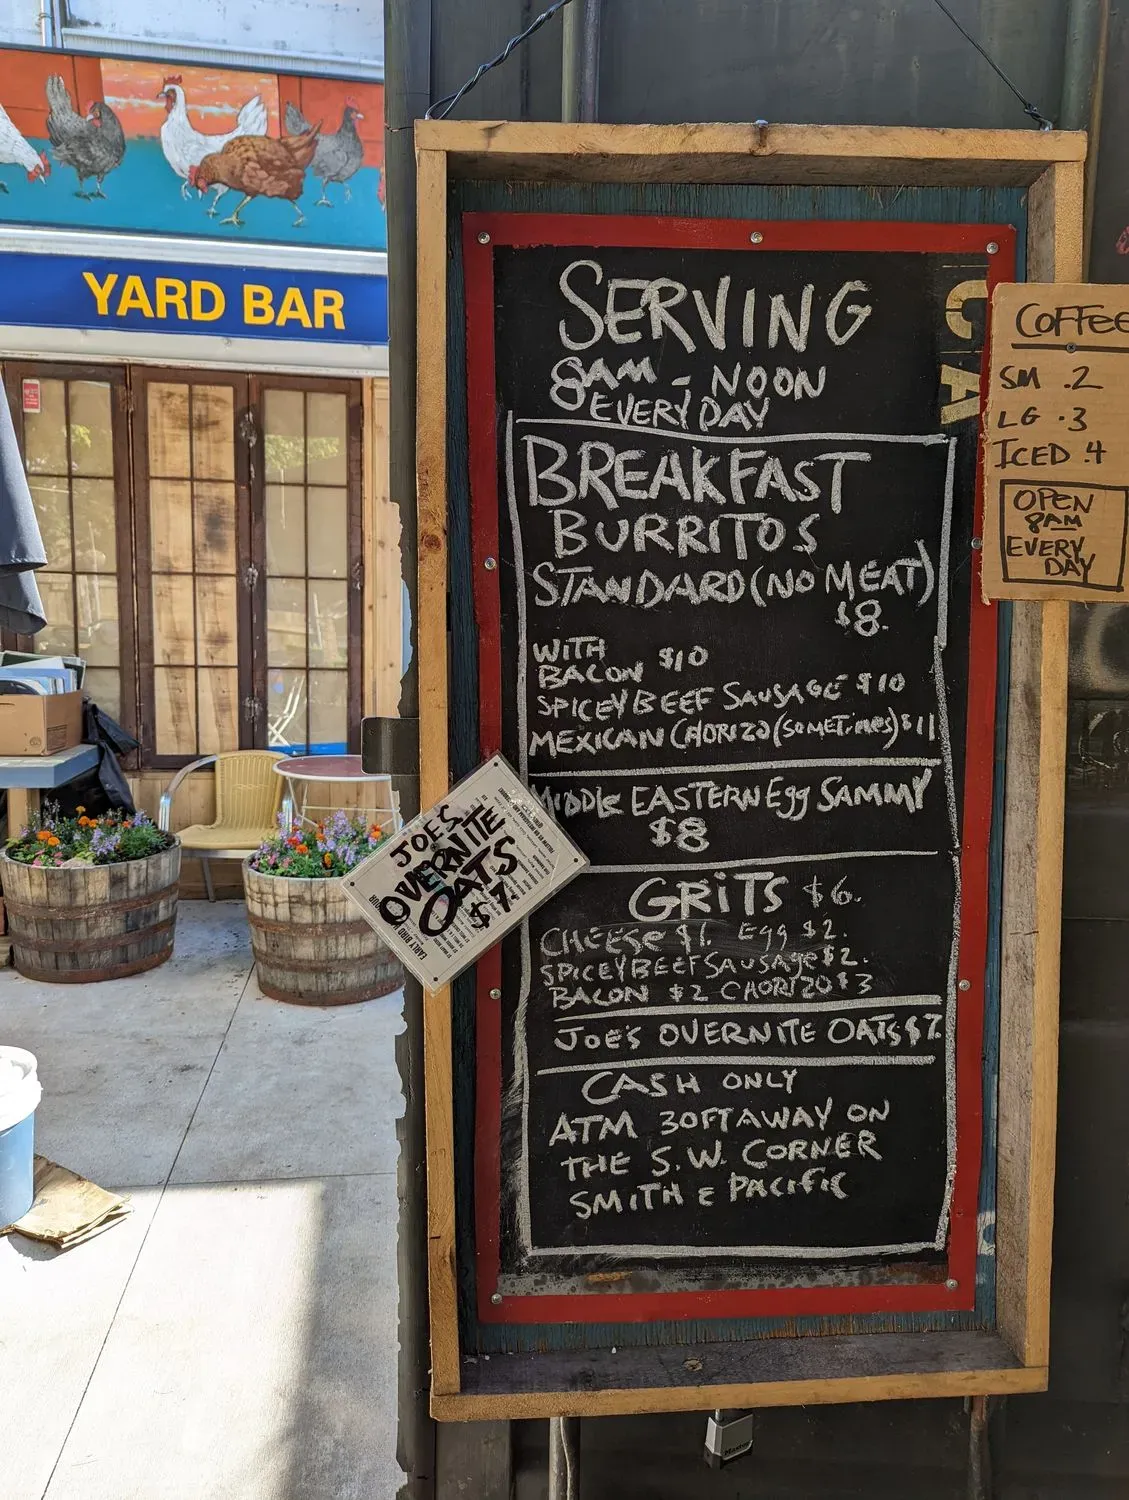 YARD BAR
SERVING
8AM - NOON
EVERY DAY
BREAKFAST
BURRITOS
STANDARD (NO MEAT)
$8.
WITH
BACON $10
SPICEY BEEF SAUSAGE $10
MEXICAN CHORIZO (SOMETIMES) $11
MIDDLE EASTERN Egg SAMMY
$8
GRiTS $6.
CHEESE $1. Egg $2.
SPICEY BEEF SAUSAgE $2.
BACON $2 CHORIZO $3
JOE'S OVERNITE OATS $7.
CASH ONLY
ATM 30FT AWAY ON
THE S.W. CORNER
SMiTH & PACifiC
JOE'S
OVERNITE
OATS
$7.
EARLY BIRD
COFFEE
SM .2
LG .3
ICED .4
OPEN
8AM
EVERY
DAY
CA
Master